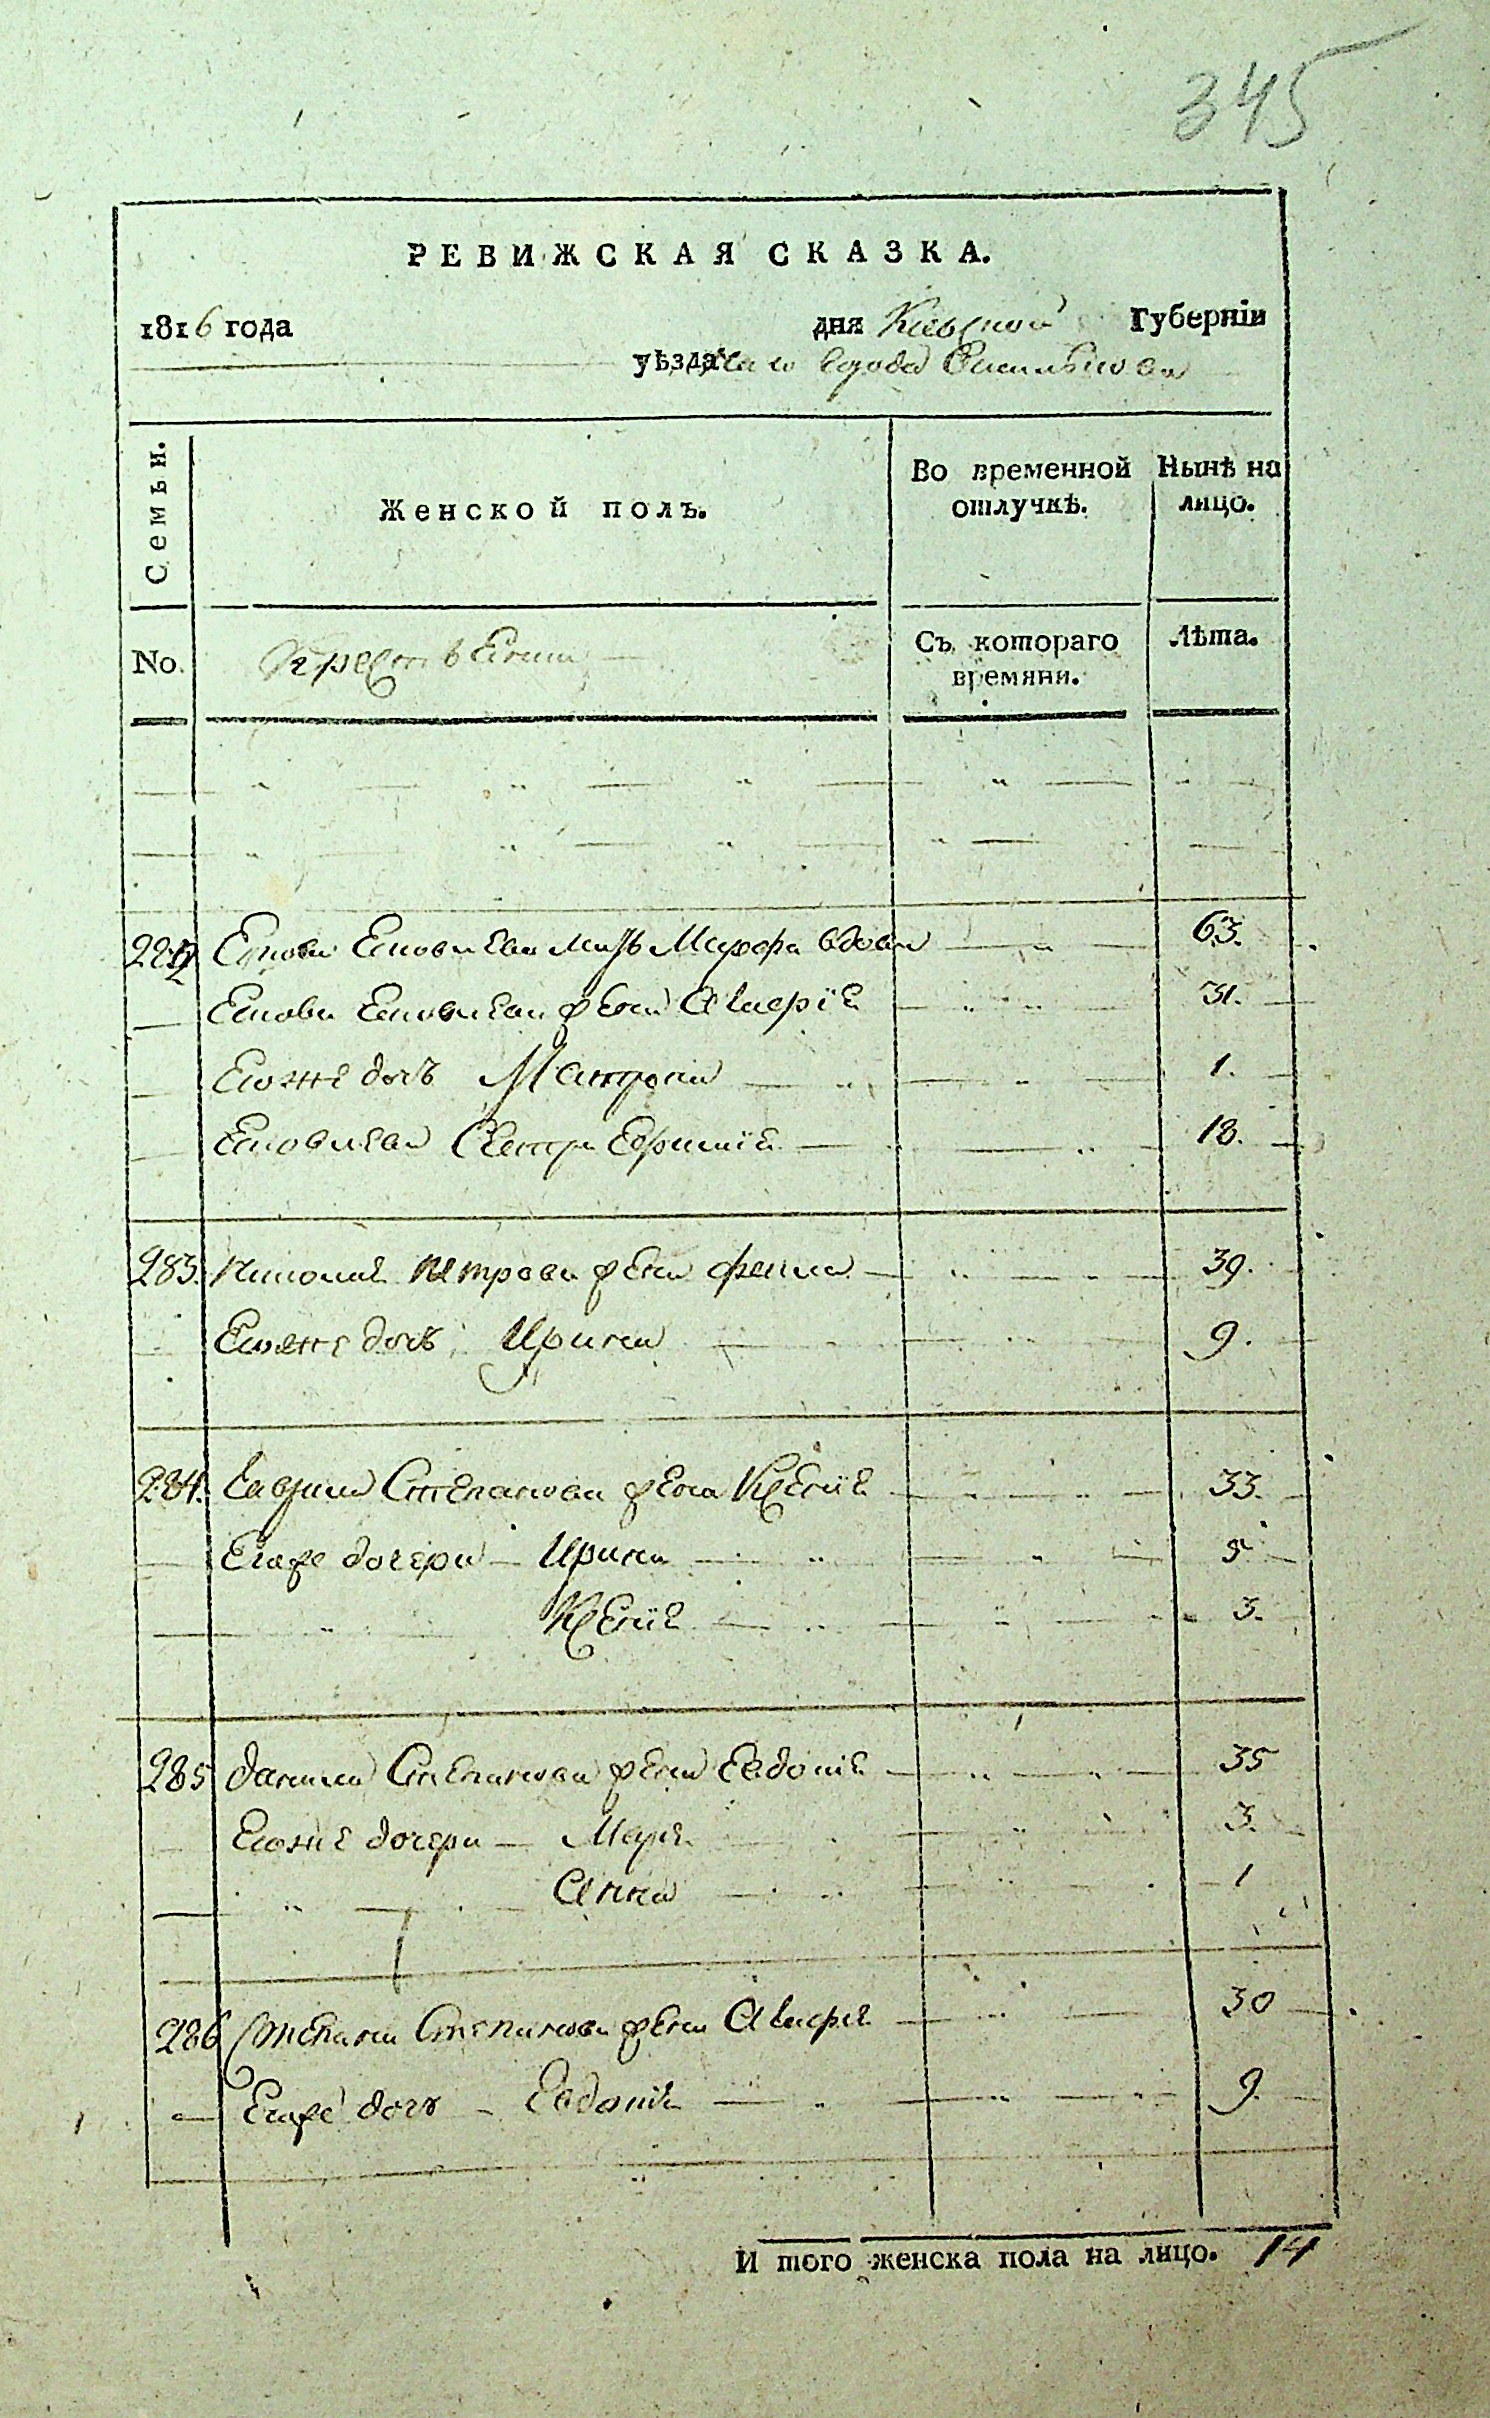 345
РЕВИЖСКАЯ СКАЗКА.
1816 года дня Киевской Губерніи
уѣзда города Василькова
Семьи. Женской полъ. Во временной отлучкѣ. Нынѣ на лицо.
No. Съ котораго времяни. Лѣта.
282 Мать вдова 63.
жена 31.
Егоже дочь Матрона 1.
сестра 18.
283. Николая Петрова жена 39.
Егоже дочь Ирина 9.
284. Гаврила Степанова жена Ксенія 33.
Егоже дочери Ирина 5
Ксенія 3.
285 Данила Степанова жена Евдокія 35
Егоже дочери Марія 3.
Анна 1
286 Степана Степанова жена 30
Егоже дочь Евдокія 9.
И того женска пола на лицо. 14